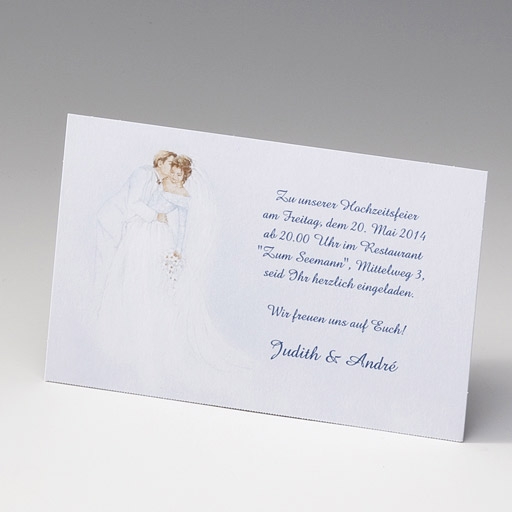 Zu unserer Hochzeitsfeier
am Freitag, dem 20. Mai 2014
ab 20.00 Uhr im Restaurant
"Zum Seemann", Mittelweg 3,
seid Ihr herzlich eingeladen.
Wir freuen uns auf Euch!
Judith & André